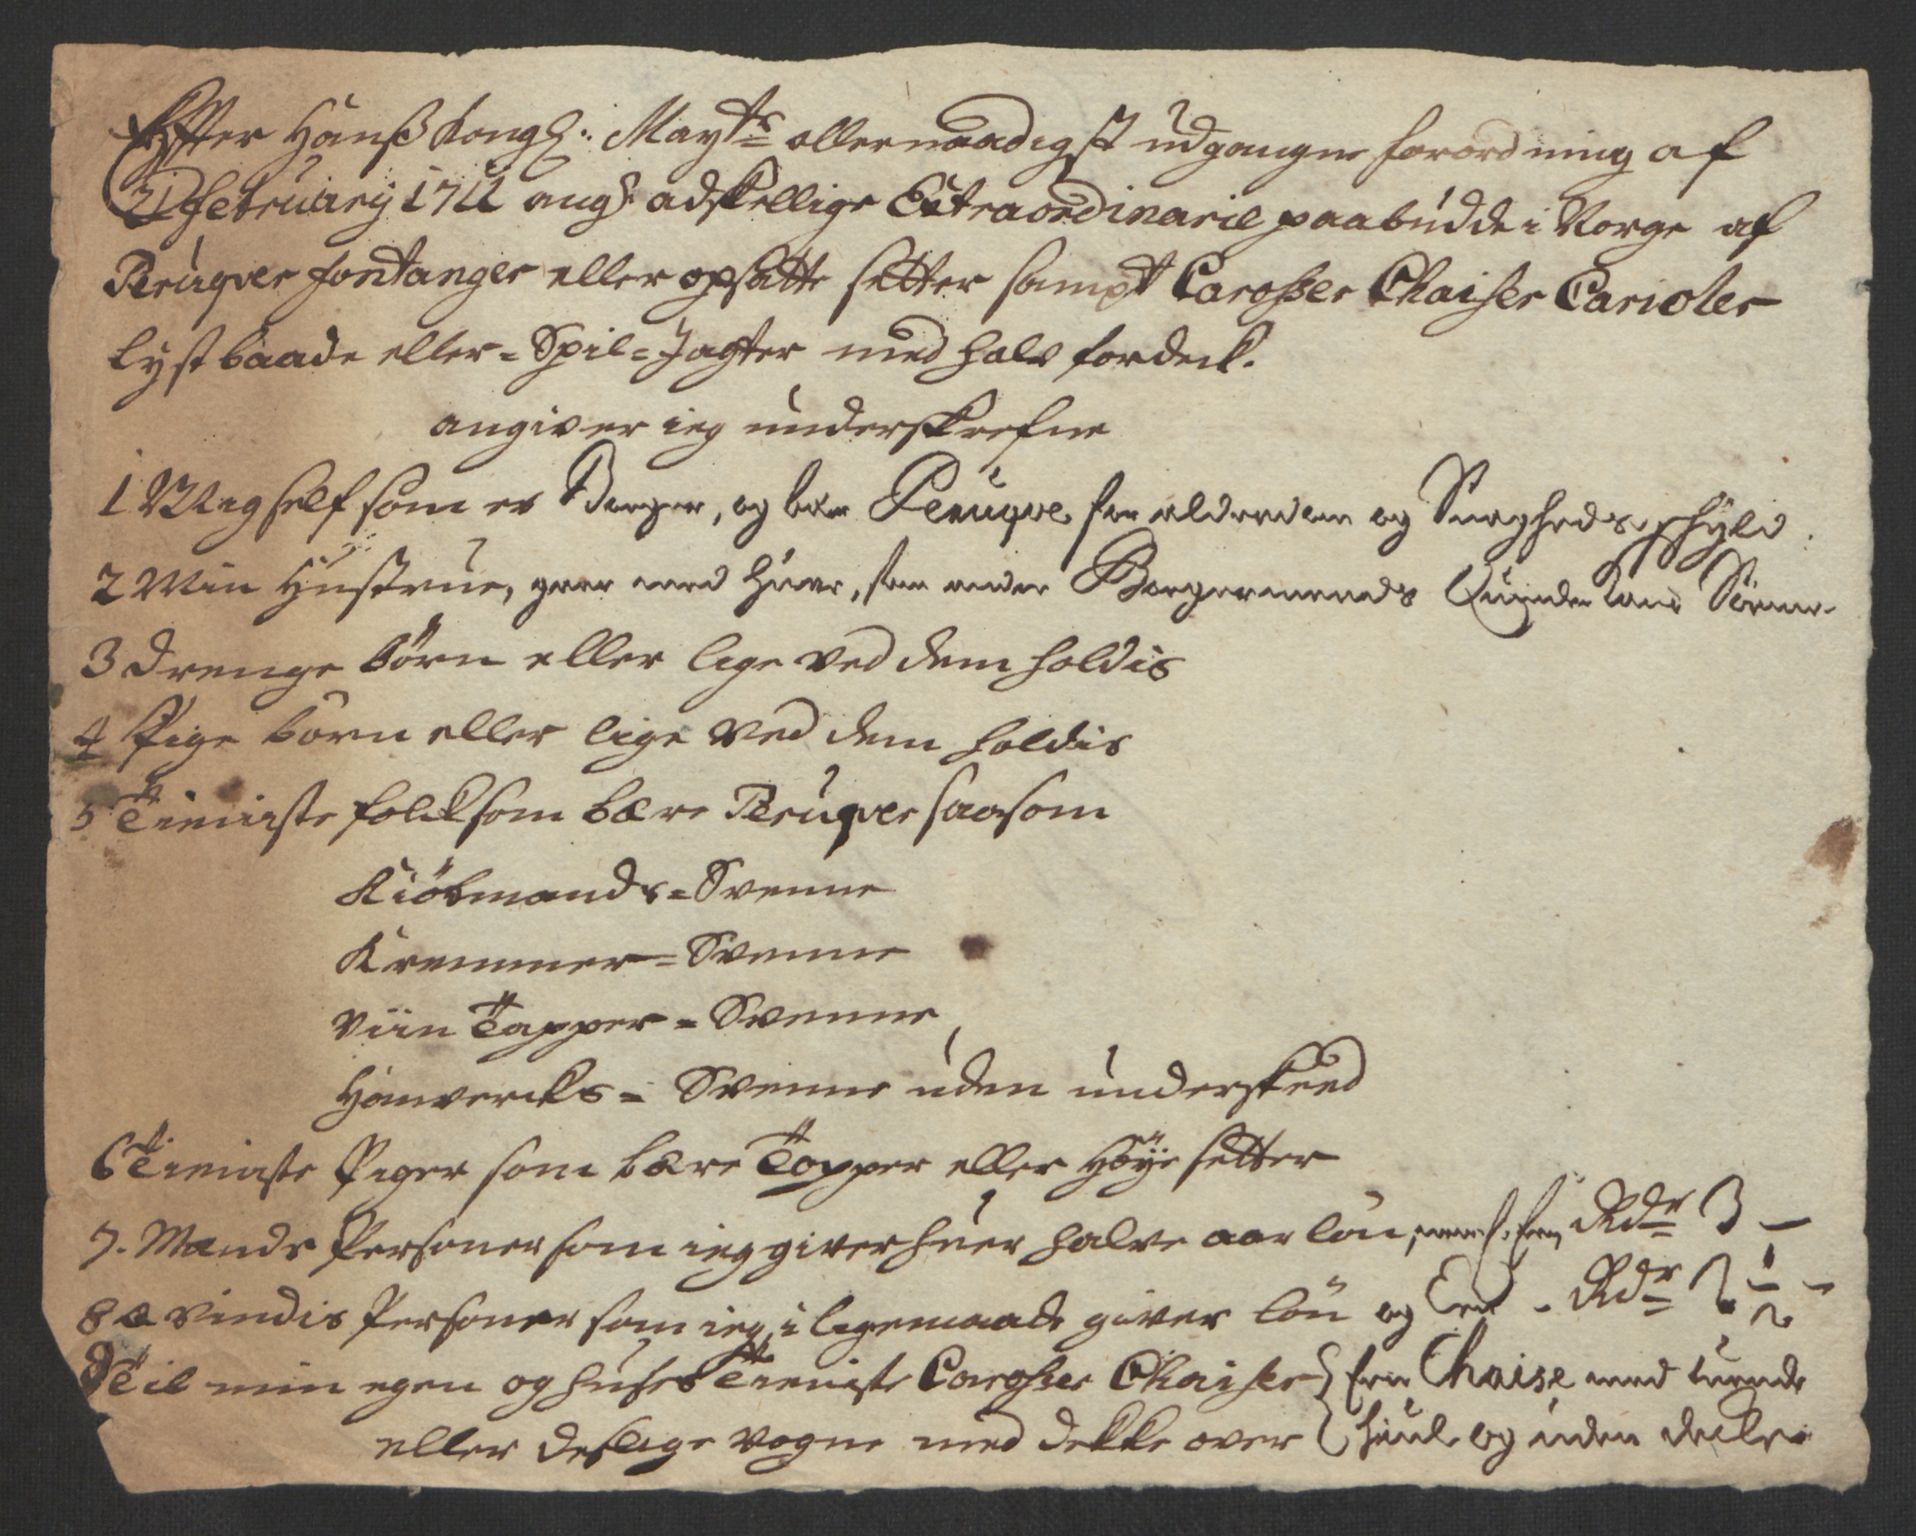 Effter Hanß Kongl: Mayts allernaadigst udgangne forordning af
21 februarij 1711 angl: adskellige Extraordinarie paabudde i Norge af
Peruqver fontanger eller opsatte setter sampt Carosser Chaiser Carioler
lystbaade eller=Spil=Jagter med halv fordeck.
angiver ieg underskrefne
1 Mig self som er Borger, og bær Peruqve for alderdom og Svaghedz schyld.
2 Min Hustrue, gaar med huer, som andre Borgermends Quinder
3 drenge børn eller lige ved dem holdis
4 Pige børn eller lige ved dem holdis
5 Tieniste folck som bære Peruqver saasom
Kiöbmands=Svenne
Kremmer=Svenne
Viin Tapper=Svenne
Hanvercks=Svenne uden underskeed
6 Tieniste Piger som bære Topper eller Höye setter
7. Mands Personer som ieg giver huer halve aar lön, Rdr 3 —
8 qvindis Personer som ieg i ligemaade giver lön og - Rdr 2 ½ -
9 Til min egen og huses Tieniste Carosser Chaiser } Een Chaise med tuende
eller deslige vogne med dekke over { hiul og uden decke